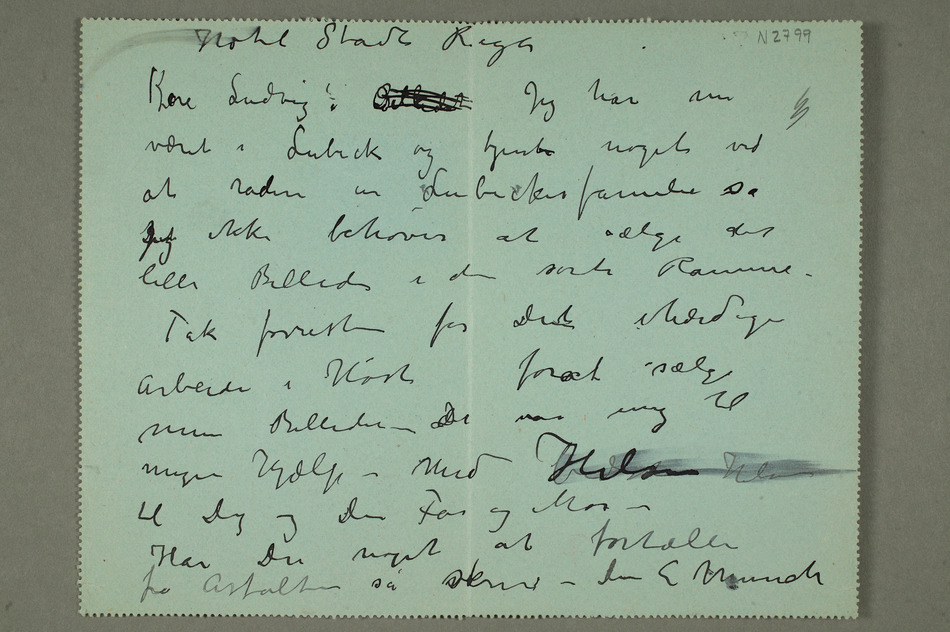 Hotel Stadt Riga
N 2799
Kære Ludvig! Jeg har nu
været i Lubeck og tjente noget ved
at radere en Lubeckerfamilie så
jeg ikke behøver at sælge det
lille Billede i den sorte Ramme –
Tak forresten for Dit ihærdige
Arbeide i Høst for at sælge
mine Billeder – Det var mig til
megen Hjælp – Med Hilsen
til Dig og Din Far og Mor –
Har Du noget at fortælle
fra Asfalten så skriv – Din E Munch